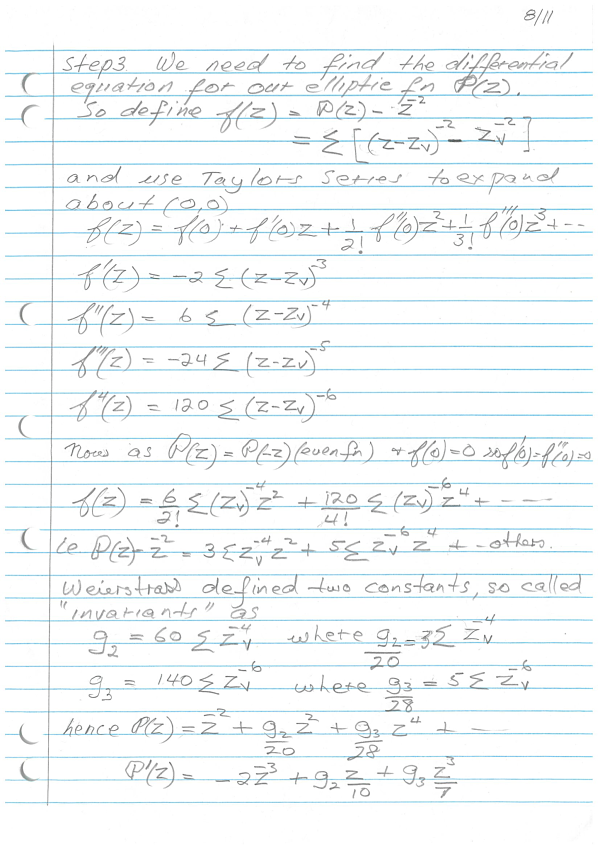 8/11
Step3 We need to find the differential
equation for our elliptic fn P(z).
So define f(z) = P(z) - z⁻²
= Σ [(z-zᵥ)⁻² - zᵥ⁻²]
and use Taylors Series to expand
about (0,0)
f(z) = f(0) + f'(0)z + 1/2! f''(0)z² + 1/3! f'''(0)z³ + --
f'(z) = -2 Σ (z-zᵥ)⁻³
f''(z) = 6 Σ (z-zᵥ)⁻⁴
f'''(z) = -24 Σ (z-zᵥ)⁻⁵
f⁴(z) = 120 Σ (z-zᵥ)⁻⁶
Now as P(z) = P(-z) (even fn) + f(0)=0 so f'(0)=f'''(0)=0
f(z) = 6/2! Σ (zᵥ)⁻⁴ z² + 120/4! Σ (zᵥ)⁻⁶ z⁴ + - - -
ie P(z) - z⁻² = 3 Σ zᵥ⁻⁴ z² + 5 Σ zᵥ⁻⁶ z⁴ + - others.
Weierstrass defined two constants, so called
"invariants" as
g₂ = 60 Σ zᵥ⁻⁴ where g₂/20 = 3 Σ zᵥ⁻⁴
g₃ = 140 Σ zᵥ⁻⁶ where g₃/28 = 5 Σ zᵥ⁻⁶
hence P(z) = z⁻² + g₂/20 z² + g₃/28 z⁴ + - -
P'(z) = -2z⁻³ + g₂ z/10 + g₃ z³/7